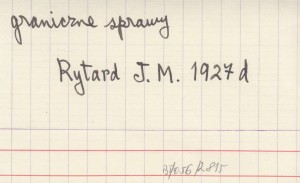 graniczne sprawy
Rytard J. M. 1927 d